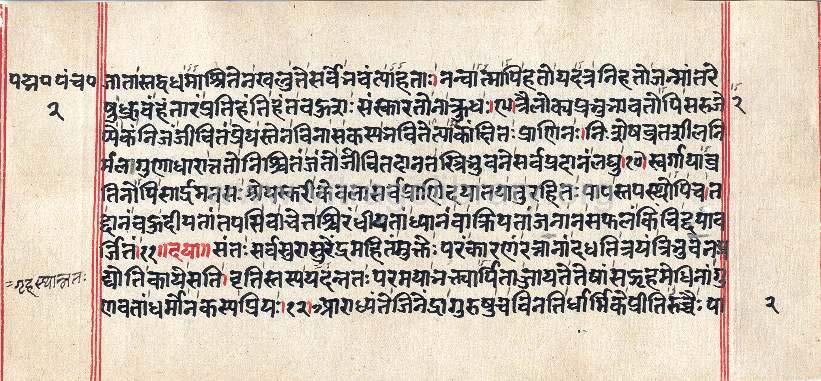 पद्मनं पंच॰ जातास्तद्वधमाश्रितेन खलु ते सर्वे भवंत्याहताः। नन्वात्मापि हतो यदत्र निहतो जन्मांतरे
२ षु ध्रुवं हंतारं प्रतिहंति हंत बहुशः संस्कारतो नु क्रुधः॥९॥ त्रैलोक्यप्रभुभावतोपि सरुजो २
प्येकं निजजीवितं प्रेयस्तेन विना स कस्य भवितेत्याकांक्षितः प्राणिनः। निःशेषव्रतशीलनि
र्मलगुणाधारात्ततो निश्चितं जंतोर्जीवितदानतस्त्रिभुवने सर्वप्रदानं लघु॥१०॥ स्वर्गायाव्र
तिनोपि सार्द्रमनसः श्रेयस्करी केवला सर्वप्राणिदया तया तु रहितः पापस्तपस्थोपि च। त
द्दानं बहु दीयतां तपसि वा चेतश्चिरं धीयतां ध्यानं वा क्रियतां जना न सफलं किंचिद्दयाव
र्जितं॥११॥ दया॥ संतः सर्वसुरासुरेंद्रमहितं मुक्तेः परं कारणं रत्नानां दधति त्रयं त्रिभुवनप्र
द्योति काये सति। वृत्तिस्तस्य यदन्नतः परमया भक्त्यार्पिताज्जायते तेषां सद्गृहमेधिनां गु
णवतां धर्मो न कस्य प्रियः॥१२॥ आराध्यंते जिनेंद्रा गुरुषु च विनतिर्धार्मिके प्रीतिरुच्चैः पा २